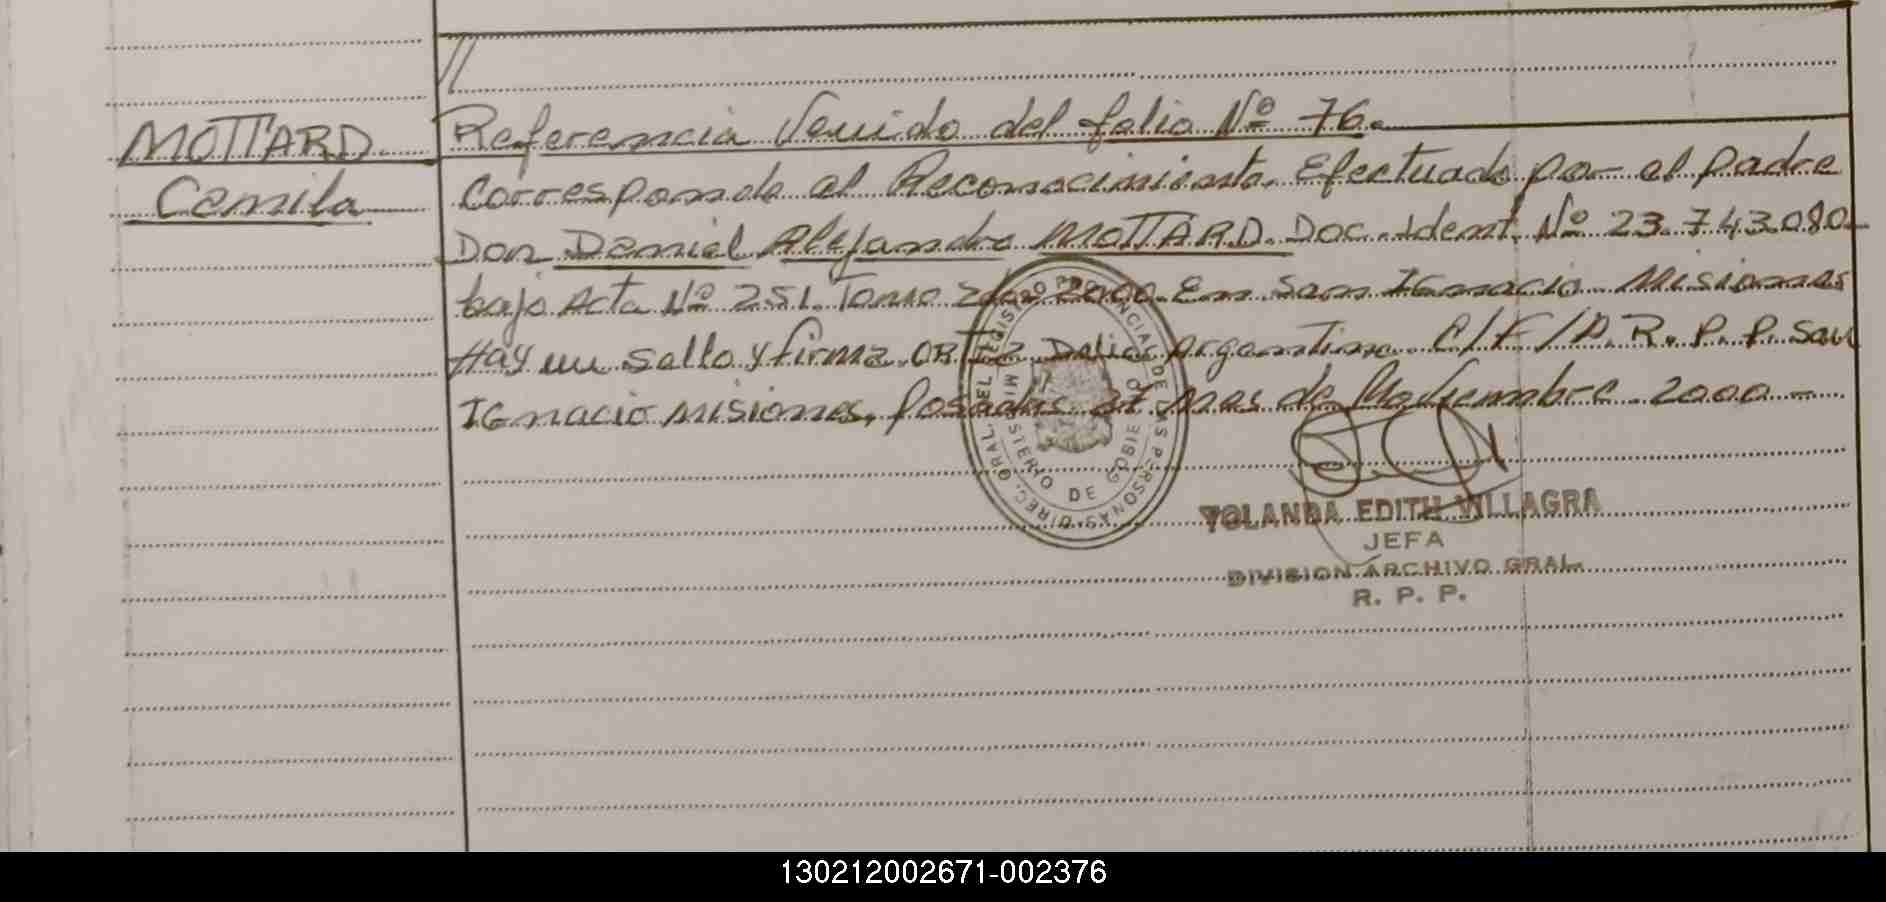 MOTTARD
Camila
Referencia Venido del folio Nº 76.
Corresponde al Reconocimiento. Efectuado por el padre
Don Daniel Alejandro MOTTARD. Doc. Ident. Nº 23.743.080-
bajo Acta Nº 251. Tomo 2000. En San Ignacio. Misiones
Hay un sello y firma. ORTIZ Delia Argentina. R. P. P. San
IGnacio Misiones, Posadas mes de Noviembre 2000-
DIREC. GRAL. DEL REGISTRO PROVINCIAL DE LAS PERSONAS
MINISTERIO DE GOBIERNO
YOLANDA EDITH VILLAGRA
JEFA
DIVISION ARCHIVO GRAL.
R. P. P.
130212002671-002376